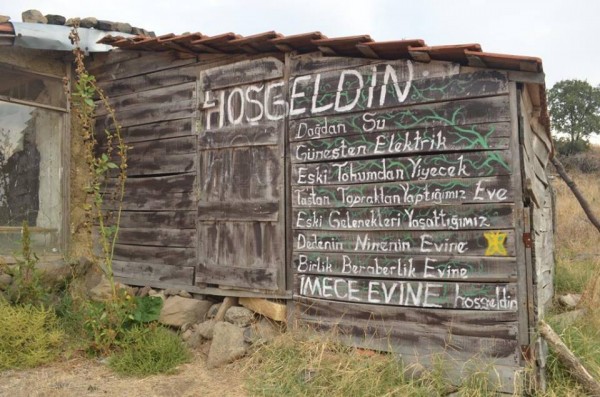 HOSGELDIN
Dağdan Su
Güneşten Elektrik
Eski Tohumdan Yiyecek
Taştan Topraktan Yaptığımız Eve
Eski Gelenekleri Yaşattığımız
Dedenin Ninenin Evine
Birlik Beraberlik Evine
İMECE EVINE hoşgeldin